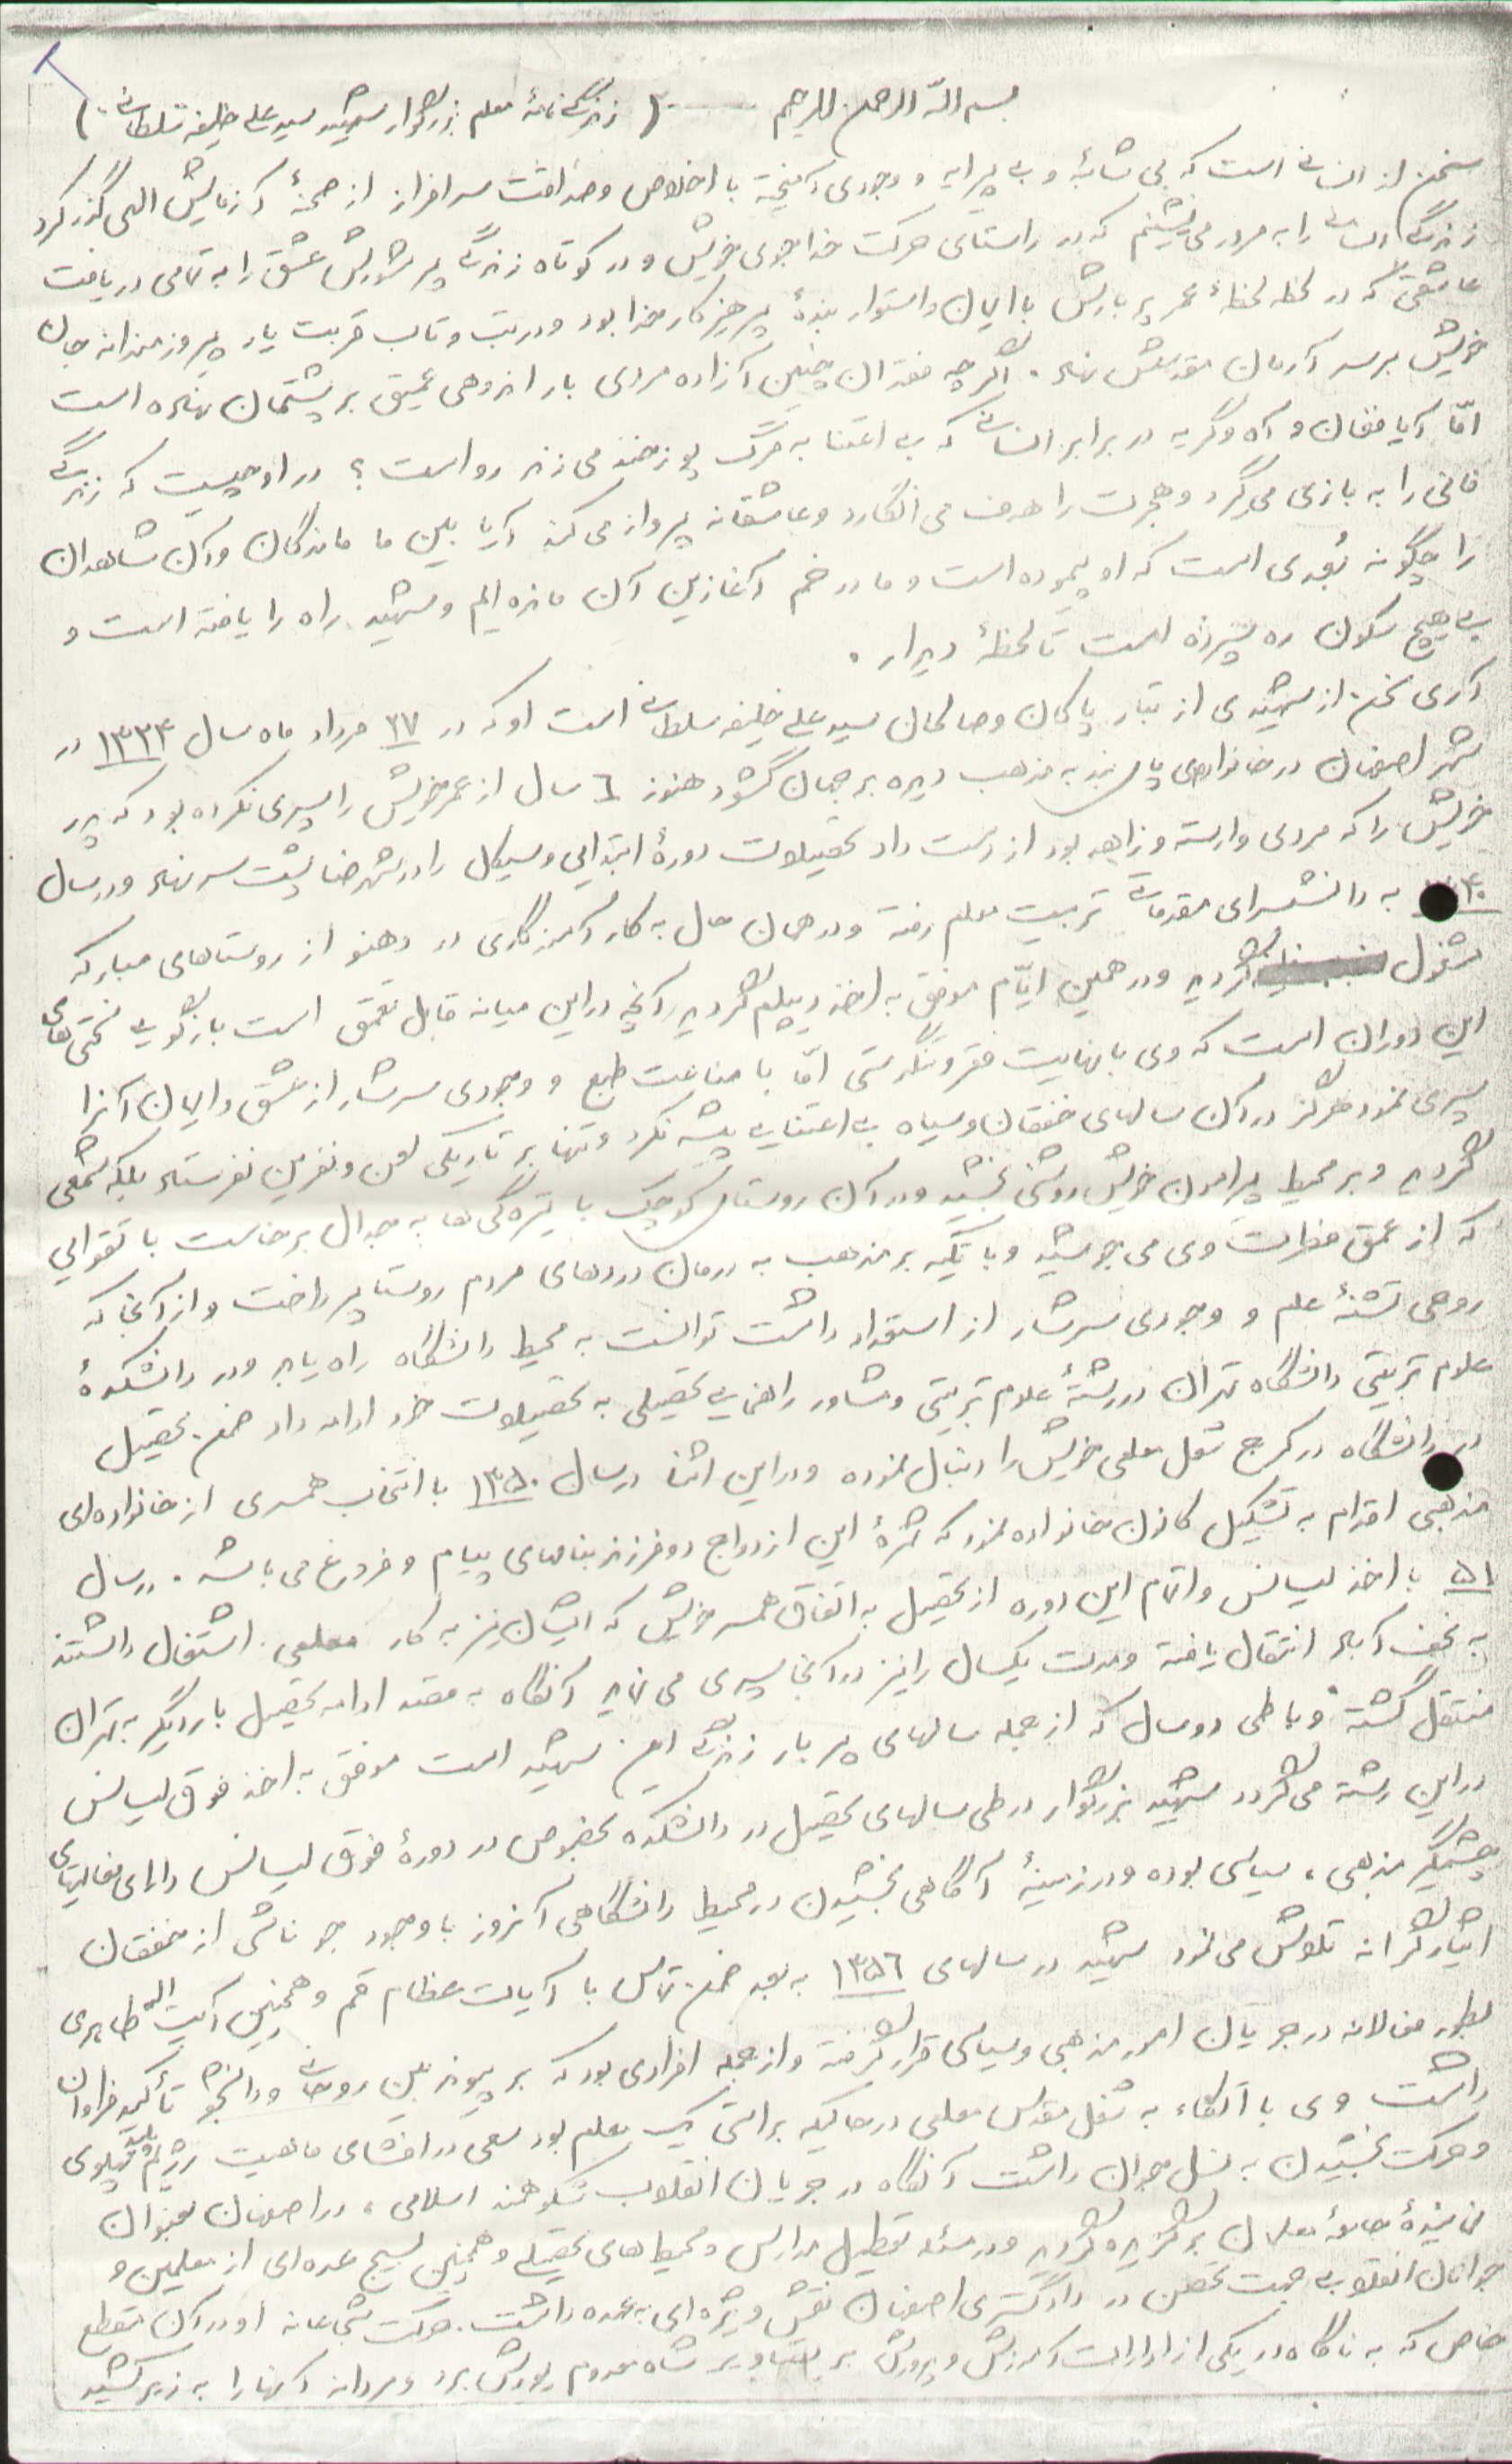 بسم الله الرحمن الرحیم ـــــــ ( زندگی نامهٔ معلم بزرگوار شهید سید علی خلیفه سلطانی )
سخن از انسانی است که بی شائبه و بی پیرایه و وجودی آمیخته با اخلاص و صداقت سرافراز از صحنهٔ آزمایش الهی گذر کرد
زندگی انسانی را به مرور می‌نشینیم که در راستای حرکت خداجوی خویش و در کوتاه زندگی پر شورش عشق را به تمامی دریافت
عاشقی که در لحظه لحظهٔ عمر پر بارش با ایمان و استوار بندهٔ پرهیزکار خدا بود و در تب و تاب قربت یار پیروزمندانه جان
خویش بر سر آرمان مقدسش نهاد . اگر چه فقدان چنین آزاده مردی بار اندوهی عمیق بر پشتمان نهاده است
امّا آیا فغان و آه و گریه در برابر انسانی که بی اعتنا به مرگ پوزخند می زند روا است ؟ در او چیست که زندگی
فانی را به بازی می‌گیرد و هجرت را هدف می انگارد و عاشقانه پرواز می کند آیا بین ما ماندگان و آن شاهدان
را چگونه بُعدی است که او پیموده است و ما در خم آغازین آن مانده ایم و شهید راه را یافته است و
بی هیچ سکون ره سپرده است تا لحظهٔ دیدار .
آری سخن از شهیدی از تبار پاکان و صالحان سید علی خلیفه سلطانی است او که در ۲۷ مرداد ماه سال ۱۳۲۴ در
شهر اصفهان در خانواده‌ی پای بند به مذهب دیده بر جهان گشود هنوز ٦ سال از عمر خویش را سپری نکرده بود که پدر
خویش را که مردی وارسته و زاهد بود از دست داد تحصیلات دورهٔ ابتدایی و سیکل را در شهرضا پشت سر نهاد و در سال
۴۰ به دانشسرای مقدماتی تربیت معلم رفته و در همان حال به کار آموزگاری در دهنو از روستاهای مبارکه
مشغول گردید و در همین ایّام موفق به اخذ دیپلم گردید آنچه در این میانه قابل تعمق است بازگویی سختی های
این دوران است که وی با نهایت فقر و تنگدستی امّا با مناعت طبع و وجودی سرشار از عشق و ایمان آنرا
سپری نمود هرگز در آن سالهای خفقان و سیاه بی اعتنایی پیشه نکرد و تنها بر تاریکی لعن و نفرین نفرستاد بلکه شمعی
گردید و بر محیط پیرامون خویش روشنی بخشید و در آن روستای کوچک با تیرگی ها به جدال برخاست با تقوایی
که از عمق فطرت وی می جوشید و با تکیه بر مذهب به درمان دردهای مردم روستا پرداخت و از آنجا که
روحی تشنهٔ علم و وجودی سرشار از استعداد داشت توانست به محیط دانشگاه راه یابد و در دانشکدهٔ
علوم تربیتی دانشگاه تهران در رشتهٔ علوم تربیتی و مشاور راهنمایی تحصیلی به تحصیلات خود ادامه داد ضمن تحصیل
در دانشگاه در کرج شغل معلمی خویش را دنبال نموده و در این اثنا در سال ۱۳۵۰ با انتخاب همسری از خانواده‌ای
مذهبی اقدام به تشکیل کانون خانواده نمود که ثمرهٔ این ازدواج دو فرزند بنامهای پیام و فروغ می باشد . در سال
۵۱ با اخذ لیسانس و اتمام این دوره از تحصیل به اتفاق همسر خویش که ایشان نیز به کار معلمی اشتغال داشتند
به نجف آباد انتقال یافته و مدت یکسال را نیز در آنجا سپری می نماید آنگاه به مقصد ادامه تحصیل بار دیگر به تهران
منتقل گشته و با طی دو سال که از جمله سالهای پر بار زندگی این شهید است موفق به اخذ فوق لیسانس
در این رشته می گردد شهید بزرگوار در طی سالهای تحصیل در دانشکده بخصوص در دورهٔ فوق لیسانس دارای فعالیتهای
چشمگیر مذهبی ، سیاسی بوده و در زمینهٔ آگاهی بخشیدن در محیط دانشگاهی آنروز با وجود جو ناشی از خفقان
ایثارگرانه تلاش می نمود شهید در سالهای ۱۳۵٦ به بعد ضمن تماس با آیات عظام قم و همچنین آیت الله طاهری
بطور فعالانه در جریان امور مذهبی و سیاسی قرار گرفته و از جمله افرادی بود که بر پیوند بین روحانی و دانشجو تأکید فراوان
داشت وی با اتکاء به شغل مقدس معلمی در حالیکه براستی یک معلم بود سعی در افشای ماهیت رژیم پلید پهلوی
و حرکت بخشیدن به نسل جوان داشت آنگاه در جریان انقلاب شکوهمند اسلامی ، در اصفهان بعنوان
نمایندهٔ جامعهٔ معلمان برگزیده گردید و در مسئله تعطیل مدارس و محیط های تحصیلی و همچنین بسیج عده‌ای از معلمین و
جوانان انقلابی جهت تحصن در دادگستری اصفهان نقش ویژه ای به عهده داشت . حرکت شجاعانه او در آن مقطع
خاص که به ناگاه در یکی از ادارات آموزش و پرورش بر تصاویر شاه معدوم یورش برد و مردانه آنها را به زیر کشید